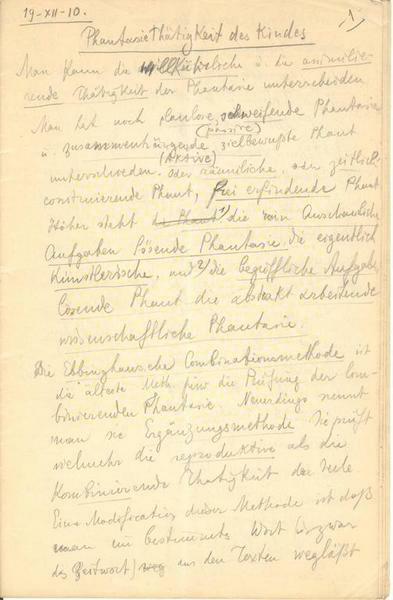 19-XII-10.
1)
Phantasie Thätigkeit des Kindes
Man kann die willkürliche u. die assimilie-
rende Thätigkeit der Phantasie unterscheiden
Man hat noch planlose, schweifende Phantasie
(passive)
u. zusammenhängende zielbewußte Phant
(Aktive)
unterschieden. oder räumliche, oder zeitlich
construirende Phant, frei erfindende Phant.
Höher steht die Phant 1) die rein Anschauliche
Aufgaben lösende Phantasie, die eigentlich
Künstlerische, und 2) die begriffliche Aufgabe
lösende Phant die abstrakt arbeitende
wissenschaftliche Phantasie.
Die Ebbinghaussche Combinationsmethode ist
die älteste Meth. für die Prüfung der Com-
binierenden Phantasie. Neuerdings nennt
man sie Ergänzungsmethode Sie prüft
vielmehr die reproduktive als die
Kombinierende Thätigkeit der Seele
Eine Modification dieser Methode ist daß
man ein bestimmtes Wort (u. zwar
das Zeitwort) weg aus den Texten wegläßt